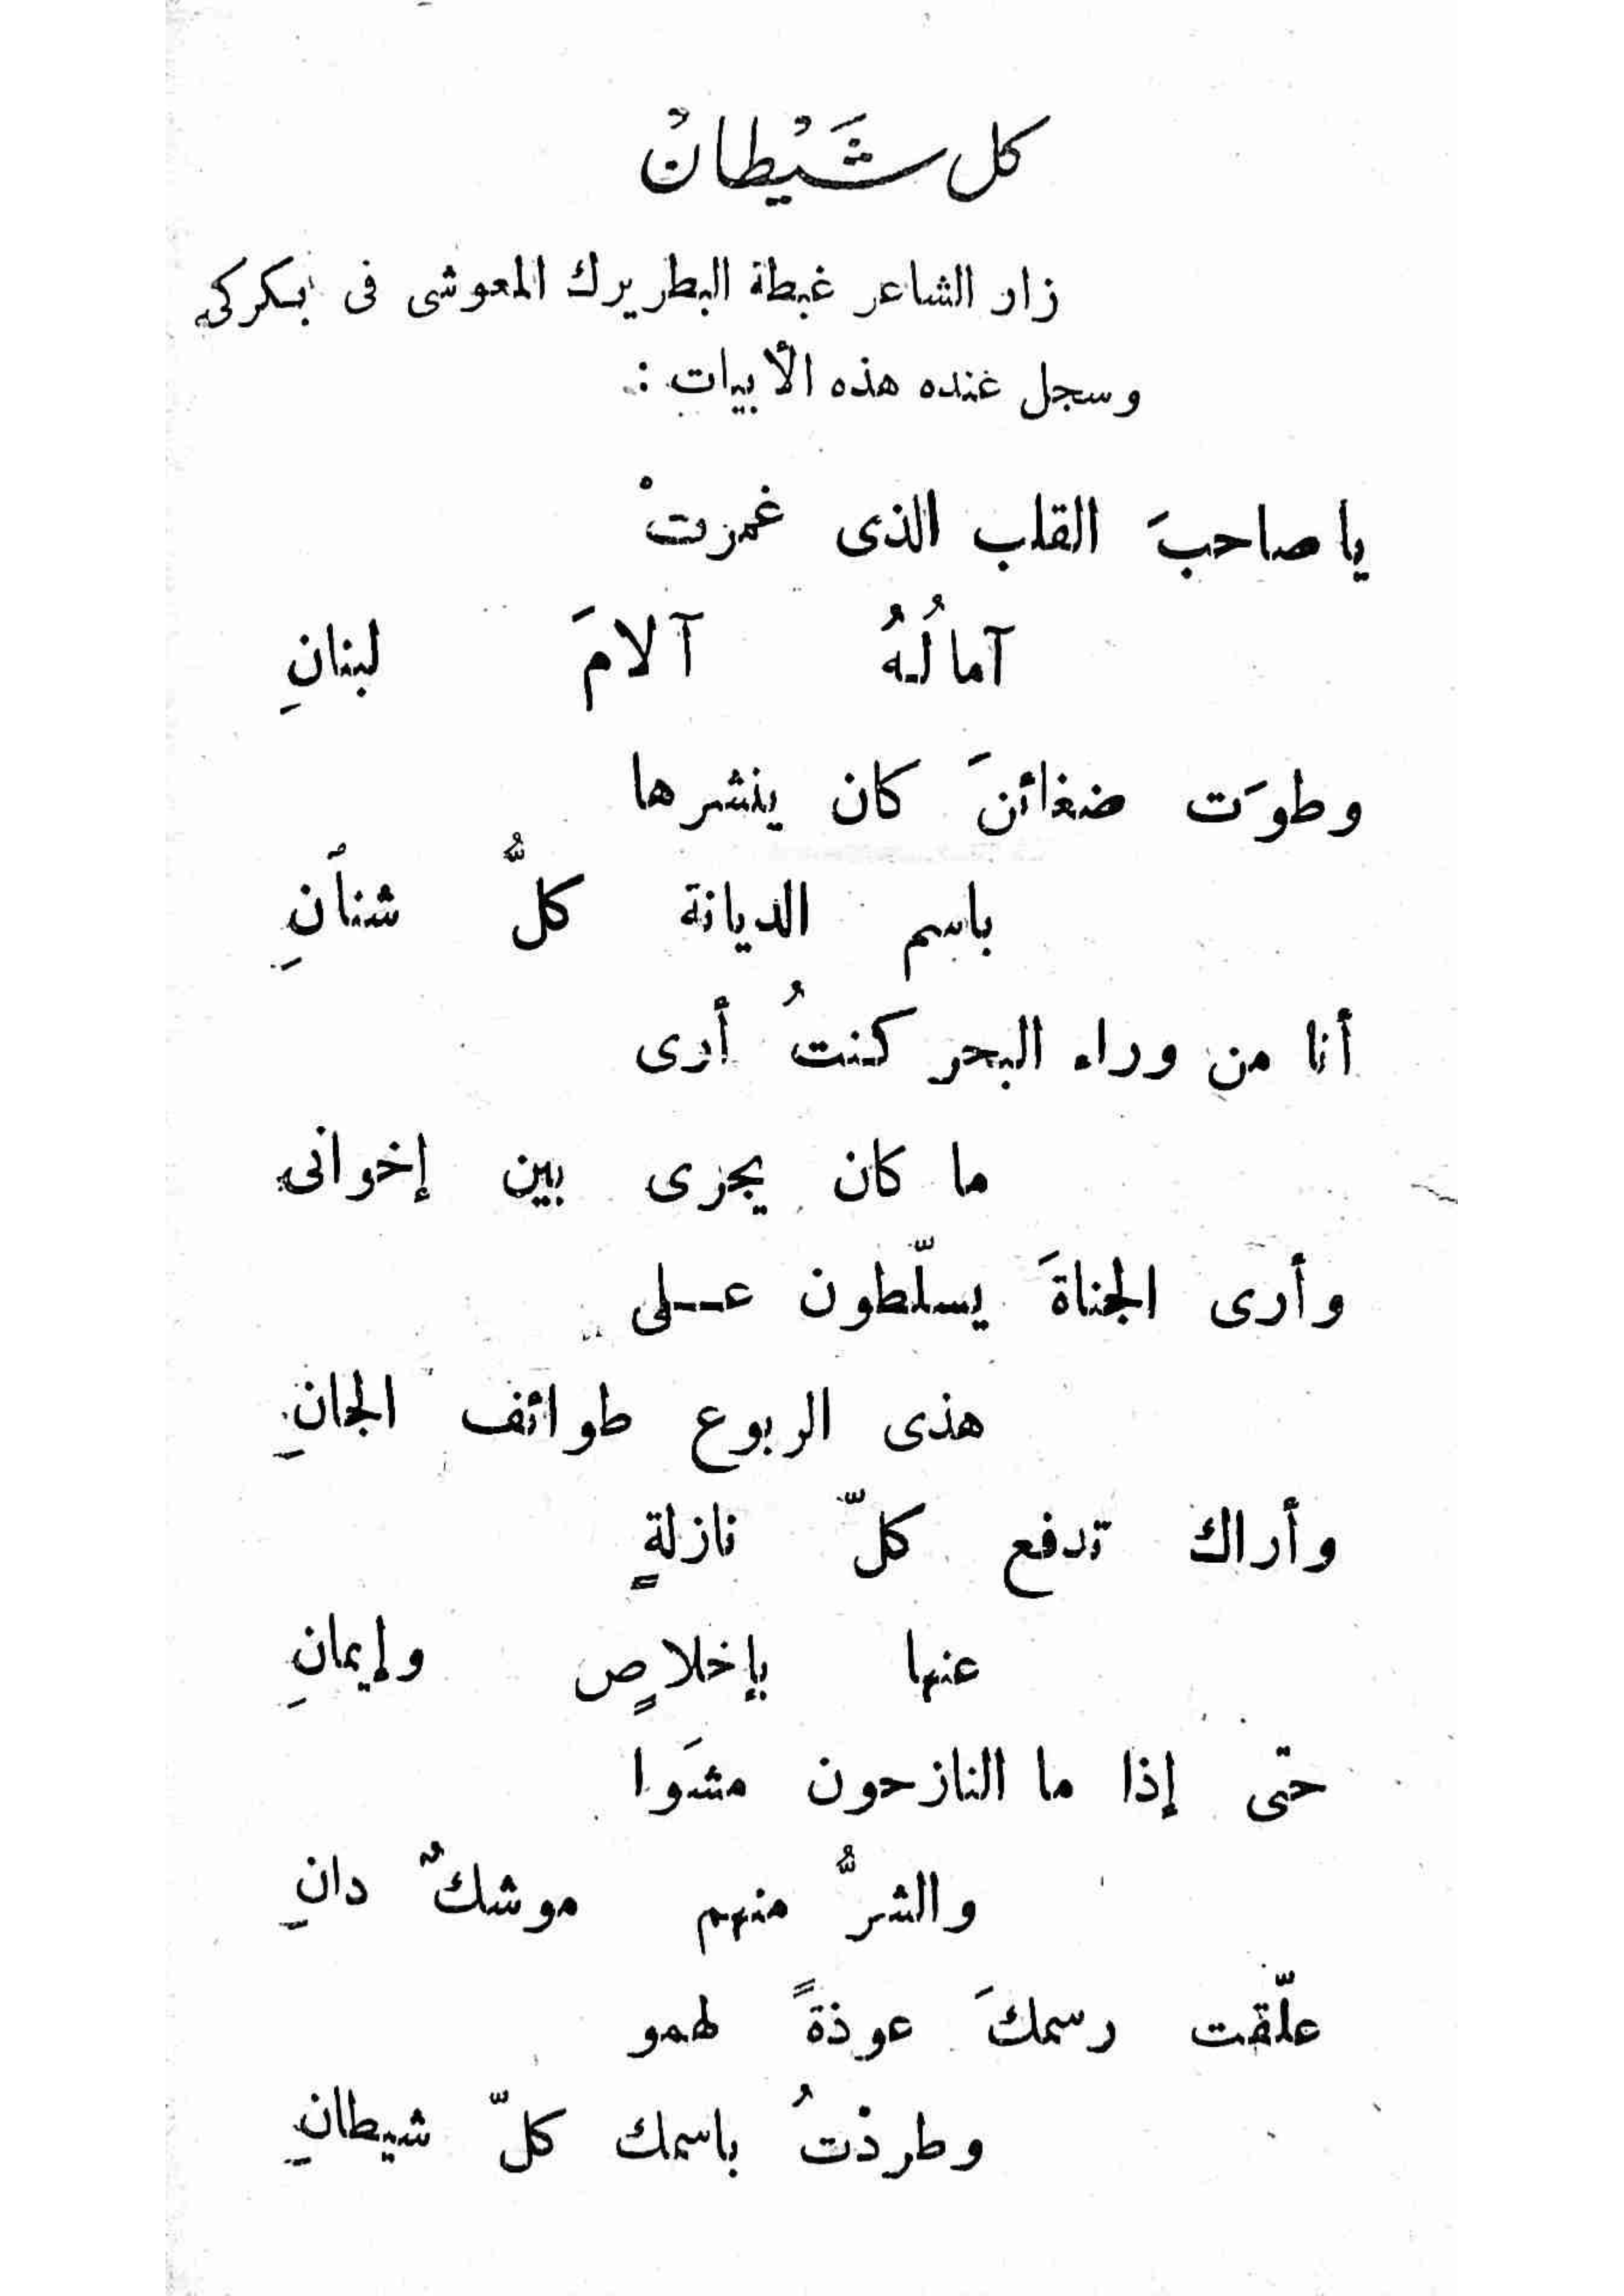 كل شَيْطانْ
زار الشاعر غبطة البطريرك المعوشى فى بكركى
وسجل عنده هذه الأبيات :
يا صاحبَ القلب الذى غمرتْ
آمالُهُ آلامَ لبنانِ
وطوَت ضغائنَ كان ينشرها
باسم الديانة كلُّ شنأنِ
أنا من وراء البحر كنتُ أرى
ما كان يجرى بين إخوانى
وأرى الجناةَ يسلّطون عــلى
هذى الربوع طوائف الجانِ
وأراك تدفع كلّ نازلةٍ
عنها بإخلاصٍ وإيمانِ
حتى إذا ما النازحون مشَوا
والشرُّ منهم موشكٌ دانِ
علّقت رسمكَ عوذةً لهمو
وطردْتُ باسمك كلّ شيطانِ